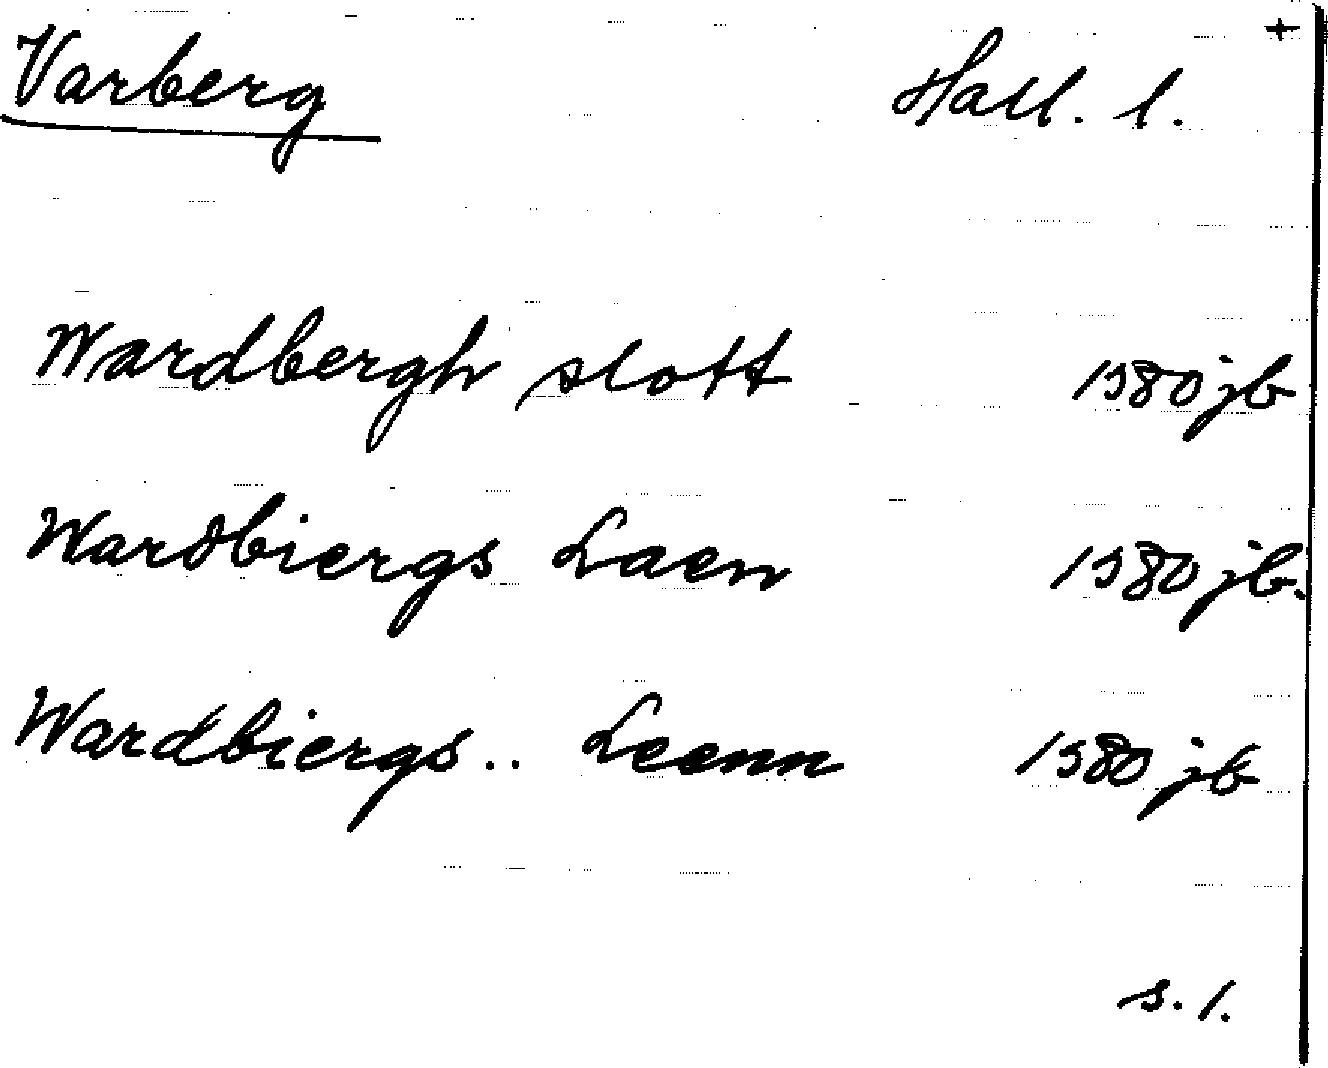 Varberg Hall. l. +
Wardbergh slott 1580 jb
Wardbiergs Laen 1580 jb.
Wardbiergs.. Leenn 1580 jb
s. 1.